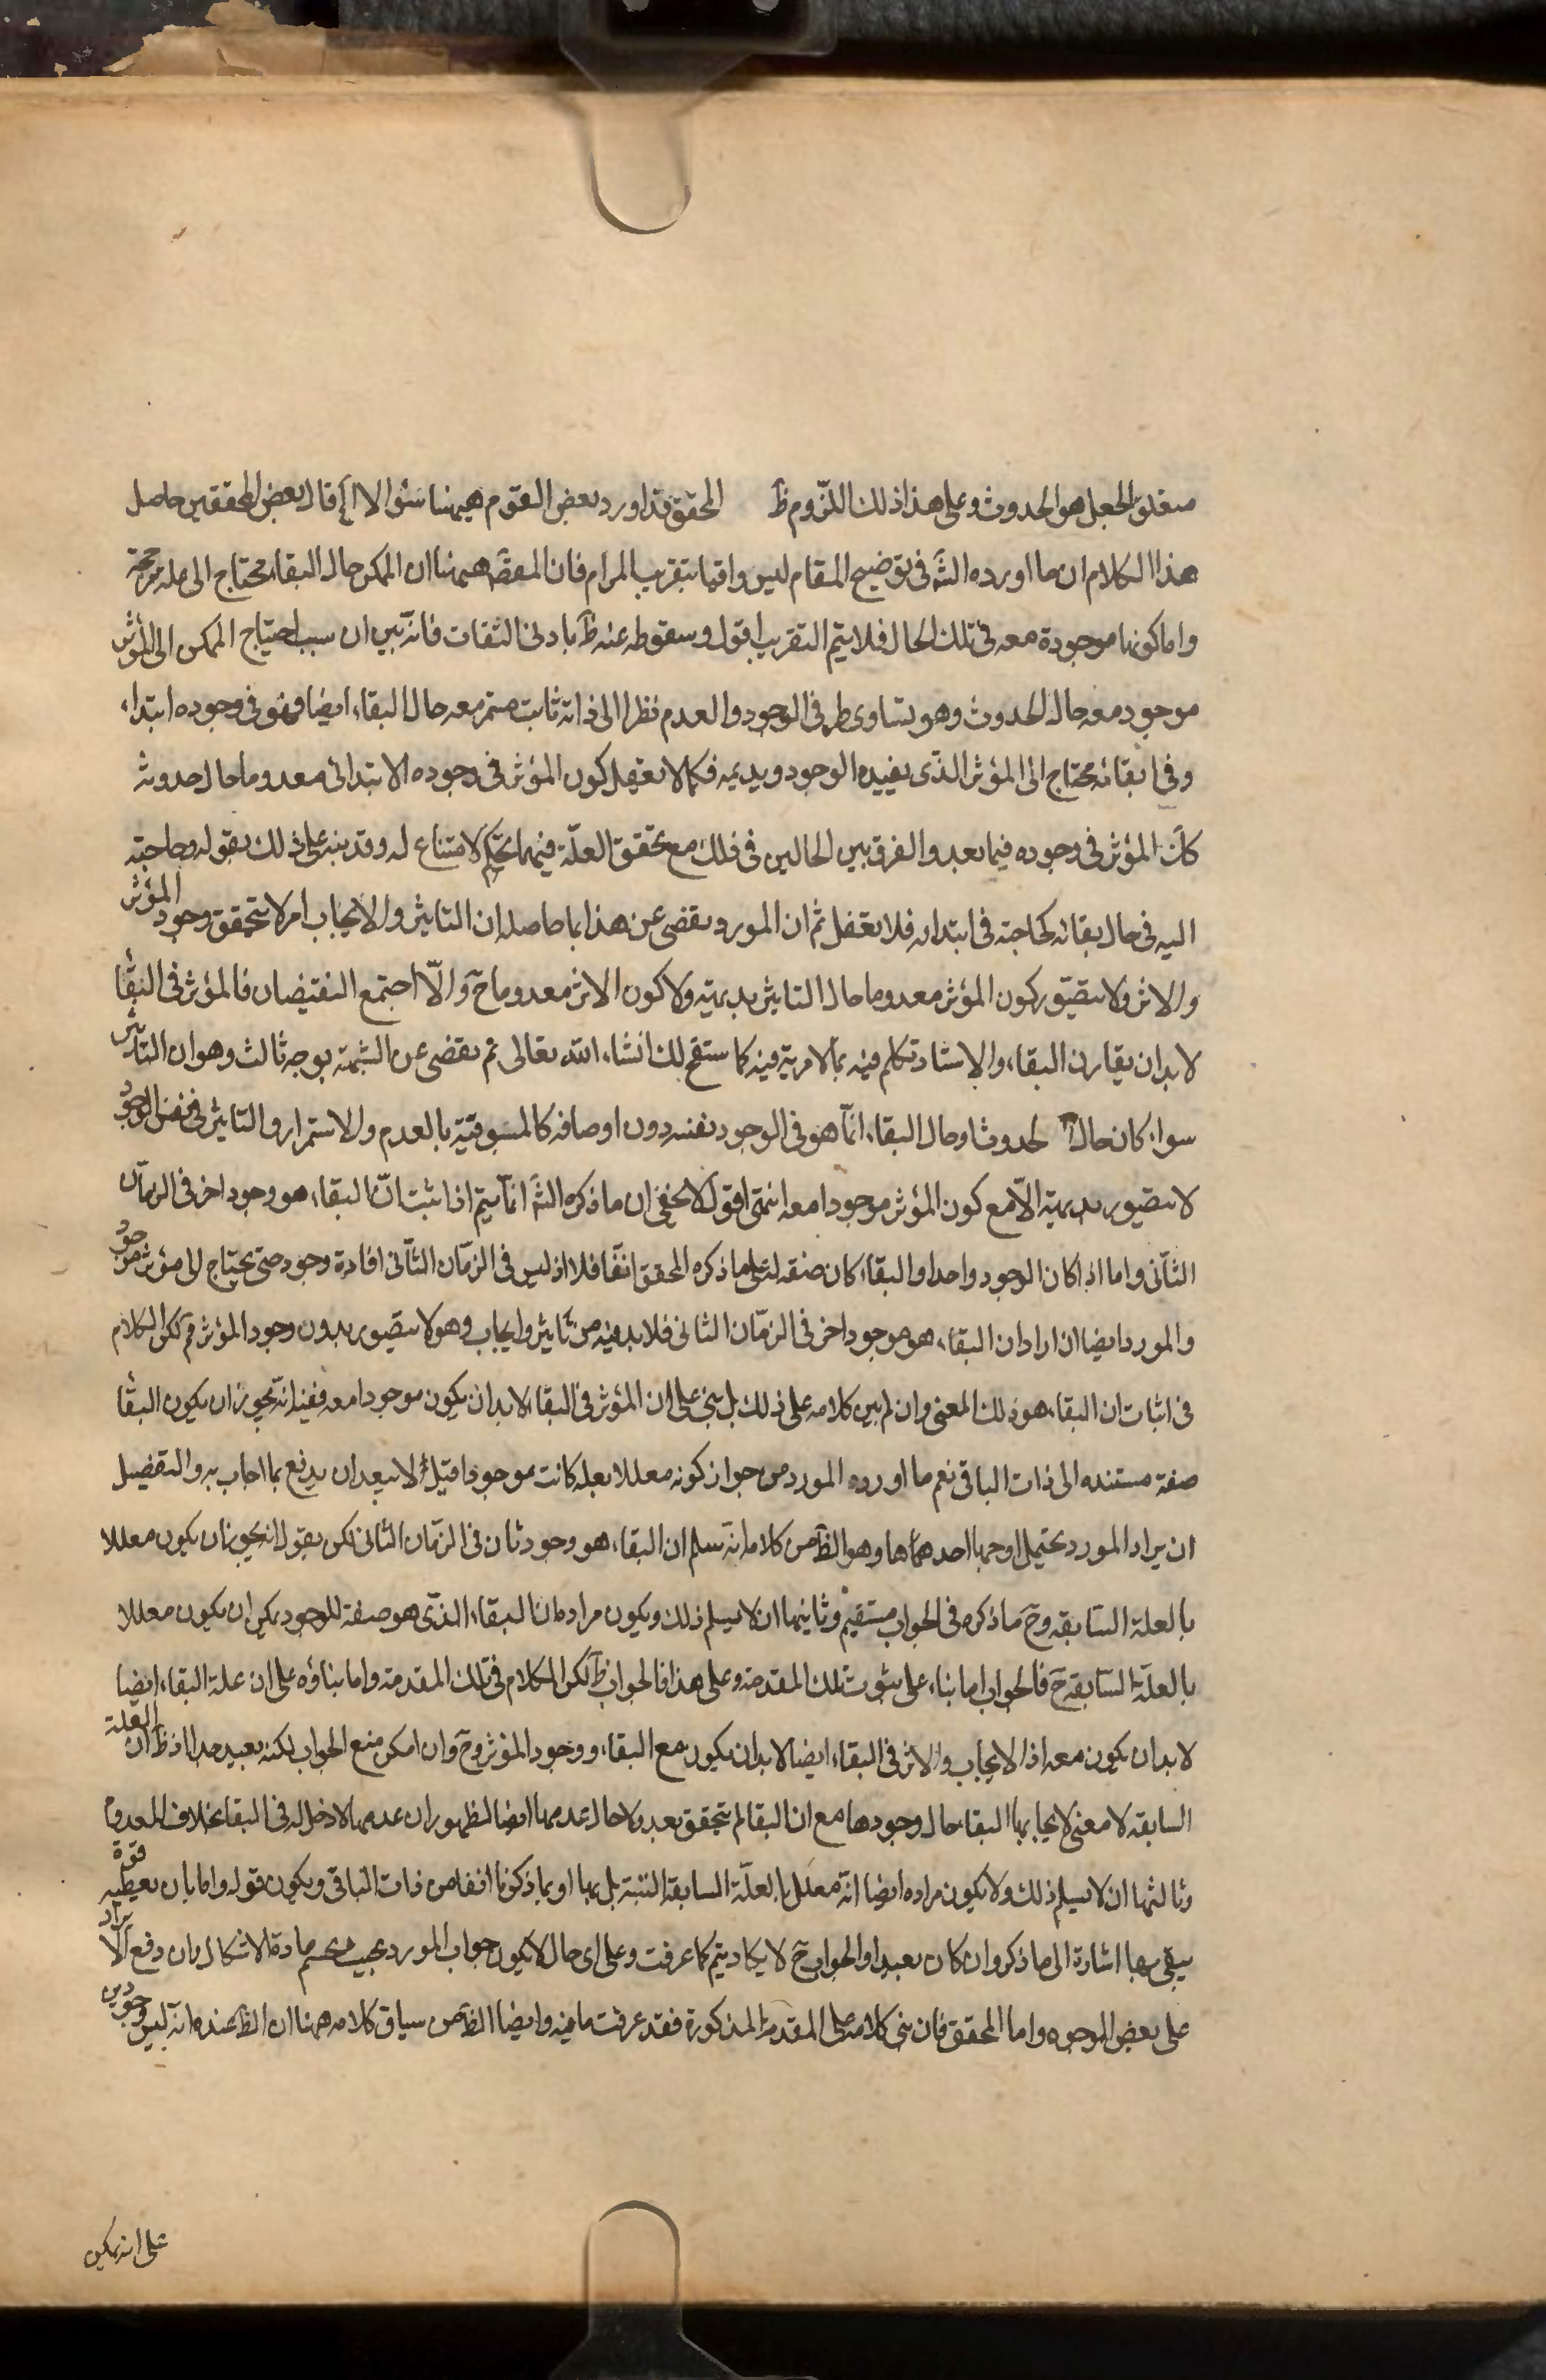 متعلق الجعل هو الحدوث وعلى هذا ذلك اللزوم ظ المحقق قد اورد بعض القوم ههنا سئوالا اٖلخ قال بعض المحققين حاصل
هذا الكلام ان ما اورده الشَ في توضيح المقام ليس وافيا بتقريب المرام فان المقصَ ههنا ان الممكن حال البقاء محتاج الى علة مرجحة
واما كونها موجودة معه في تلك الحال فلا يتم التقريب اقول وسقوطه عنه ظَ بادنى التفات فانه بين ان سبب احتياج الممكن الى المؤثر
موجود معه حال الحدوث وهو تساوى طرفى الوجود والعدم نظرا الى ذاته ثابت مستمر معه حال البقاء ايضا فهو في وجوده ابتداء
وفي ابقائه محتاج الى المؤثر الذي يفيده الوجود ويديمه فكما لا يعقل كون المؤثر في وجوده الابتدائى معدوما حال حدوثه
كذَ المؤثر في وجوده فيما بعد والفرق بين الحالين في ذلك مع تحقق العلّة فيهما تحكّم لامتناع له وقد نبه على ذلك بقوله وحاجته
اليه في حال بقائه كحاجته في ابتدائه فلا تغفل ثم ان المورد تفصى عن هذا بما حاصله ان التاثير والايجاب امر لا يتحقق وجود المؤثر
والاثر ولا يتصوّر كون المؤثر معدوما حال التاثير بديهية ولا كون الاثر معدوما حَ والّا اجتمع النقيضان فالمؤثر في البقاء
لا بد ان يقارن البقاء والاستاد تكلم فيه بما لا مرية فيه كما ستقح لك انشاء الله تعالى ثم تفصى عن الشبهة بوجه ثالث وهو ان التاثير
سواء كان حال الحدوث او حال البقاء انّما هو في الوجود نفسه دون اوصافه كالمسبوقيّة بالعدم والاستمرار والتاثير في نفس الوجود
لا يتصور بديهية الّا مع كون المؤثر موجودا معه انتهى اقول لا يخفى ان ما ذكره الشَ انّما يتم اذا ثبت انّ البقاء هو وجود اخر في الزمان
الثانى واما اذا كان الوجود واحدا والبقاء كان صفة له على ما ذكره المحقق انفا فلا اذ ليس في الزمان الثانى افادة وجود حتى يحتاج الى مؤثر موجود
والمورد ايضا ان اراد ان البقاء هو موجود اخر في الزمان الثانى فلا بد فيه من تاثير وايجاب وهو لا يتصور بدون وجود المؤثر فمَ لكن الكلام
في اثبات ان البقاء هو ذلك المعنى وان لم يبن كلامه على ذلك بل بنى على ان المؤثر في البقاء لا بد ان يكون موجودا معه ففيه انّه يجوز ان يكون البقاء
صفة مستنده الى ذات الباقى نعم ما اورده المورد من جواز كونه معللا بعلة كانت موجودة قبل لا يبعد ان يدفع بما اجاب به والتفصيل
ان يراد المورد يحتمل اوجها احدهما ها وهو الظَ من كلامه انّه تسلم ان البقاء هو وجود ثان في الزمان الثانى لكن يقول انه يجوز ان يكون معللا
بالعلة السابقة وحَ ما ذكره في الجواب مستقيم وثانيها ان لا يسلم ذلك ويكون مراده ان البقاء الذى هو صفة للوجود يمكن ان يكون معللا
بالعلّة السّابقة حَ فالجواب اما بناء على ثبوت تلك المقدمة وعلى هذا فالجواب ظَ لكن الكلام في تلك المقدمة واما بناؤه على ان علة البقاء ايضا
لا بد ان يكون معه اذ الايجاب والاثر في البقاء ايضا لا بد ان يكون مع البقاء ووجود المؤثر وحَ وان امكن منع الجواب لكنه بعيد جدا اذ ظَ ان العلة
السابقة لا معنى لايجابها البقاء حال وجودها مع ان البقاء لم يتحقق بعد ولا حال عدمها ايضا لظهور ان عدمها لا دخل له في البقاء بخلاف المعدوم
وثالثها ان لا يسلم ذلك ولا يكون مراده ايضا انّه معلل بالعلّة السابقة البتة بل بها او بما ذكرنا انفا من ذات الباقى ويكون قوله واما بان يعطيه قوة
يبقى بها اشارة الى ما ذكر وان كان بعيدا والجواب حَ لا يكاد يتم كما عرفت وعلى اى حال لا يكون جواب المورد بحيث يحسم مادة الاشكال وان دفع الايراد
على بعض الوجوه واما المحقق فان بنى كلامه على المقدمة المذكورة فقد عرفت ما فيه وايضا الظَ من سياق كلامه ههنا ان الظَ عنده انه ليس وجودين
على انه يمكن